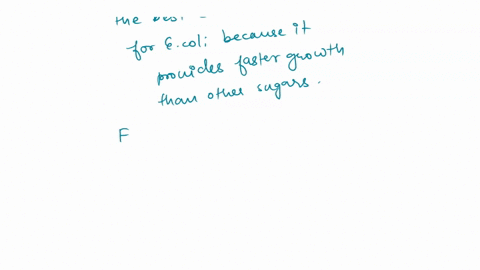 the
for E.coli because it
provides faster growth
than other sugars.
F